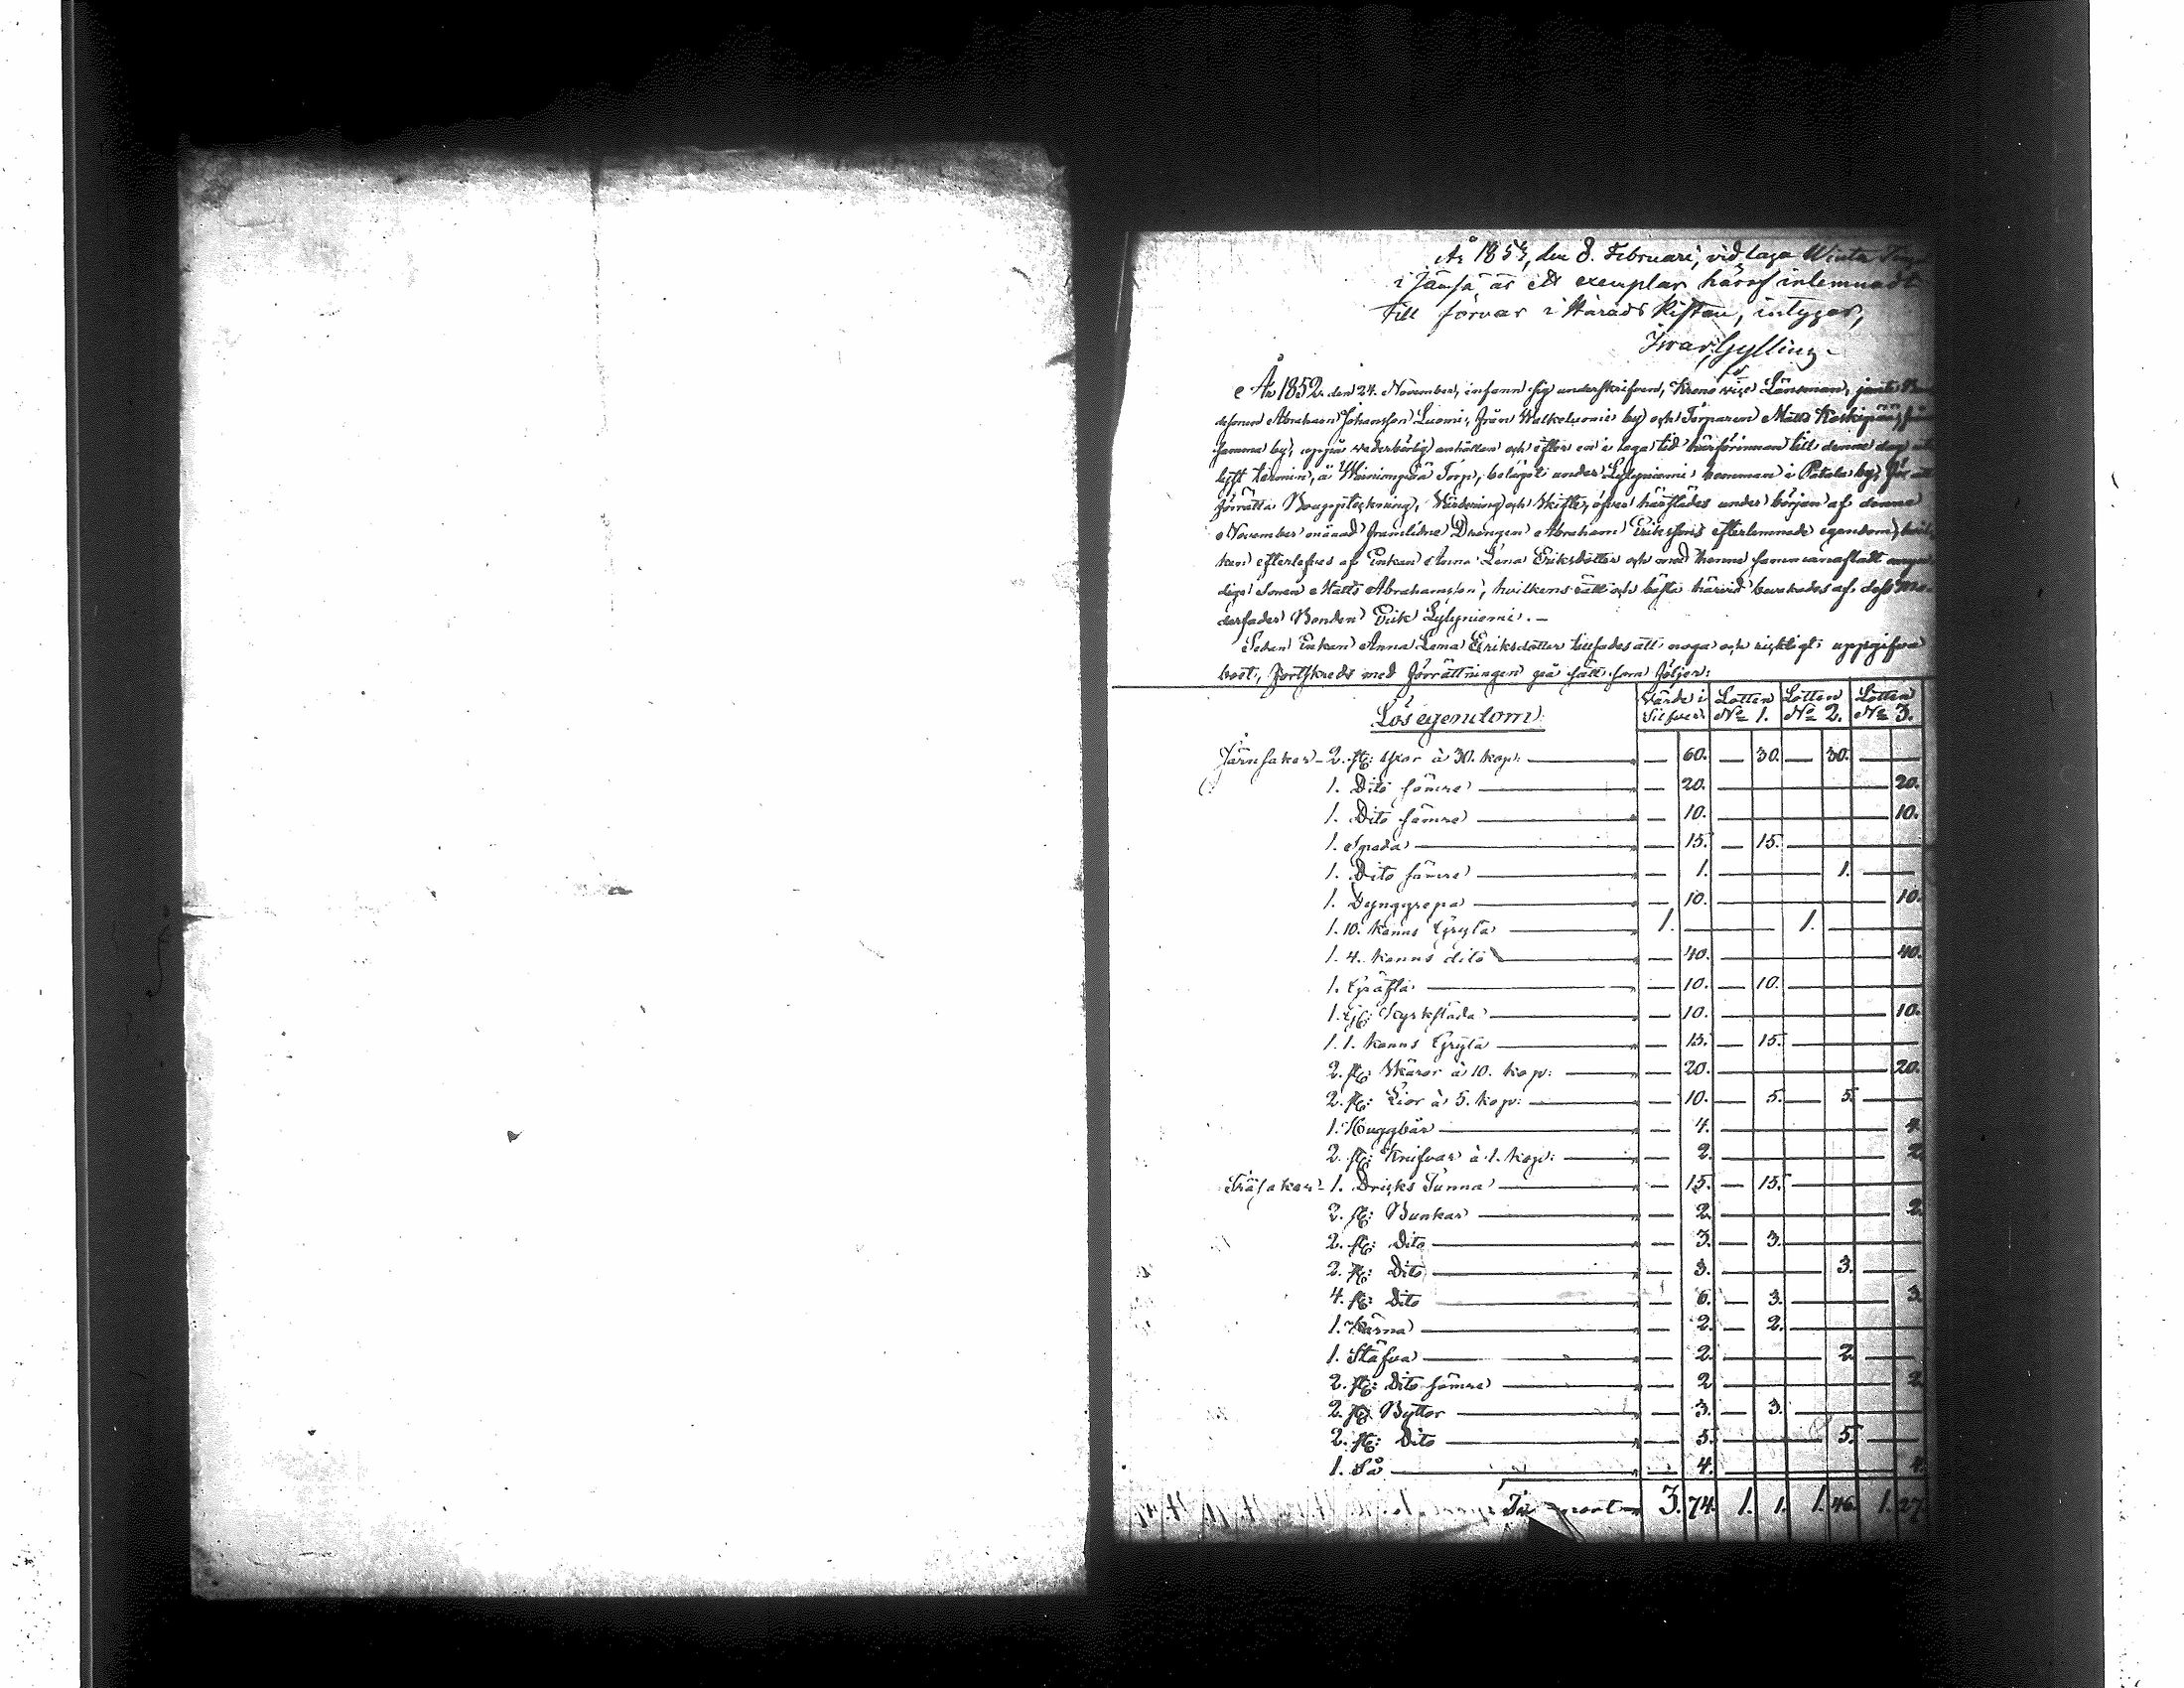 År 1854, den 8. Februari, vid laga Winter Ting
i Jämsä är ett exemplar häraf inlemnadt
till förvar i Härads Kistan, intygar,
Ivar Gylling
År 1852 den 24. November, infann sig underskrifven, Krono vice Länsman, jemte
Abraham Johansson Luomi, från Walkeluomi by och Torparen Matts Koskipää, från
samma by, uppå vederbörlig anhållan och efter en i laga tid härförinnan till denna dag
termin, å Torp, belägit under Lylyniemi hemman i Patala by, för att
förrätta Bouppteckning, Värdering och Skifte, öfver härstädes under början af denna
November månad framlidne Drengen Abraham Erikssons efterlemnade egendom,
ken efterlefves af Enkan Anna Lena Eriksdotter och med henne sammanaflade
dige Sonen Matts Abrahamsson, hvilkens rätt och bästa härvid bevakades af dess Mo-
derfader Bonden Erik Lylyniemi. –
Sedan Enkan Anna Lena Eriksdotter tillsades att noga och ricktigt uppgifva
boet, fortskreds med förrättningen på sätt som följer:
Lösegendom Värde i Silfver Lotten No 1. Lotten No 2. Lotten No 3.
Järnsaker – 2. st: Yxor à 30. kop: — 60. — 30. — 30. —
1. Dito sämre — 20. — 20.
1. Dito sämre — 10. — 10.
1. Spada — 15. — 15. —
1. Dito sämre — 1. — 1. —
1. Dynggrepa — 10. — 10.
1. 10. kanns Gryta 1. — 1. —
1. 4. kanns dito — 40. — 40.
1. Gräfta — 10. — 10. —
1. — 10. — 10.
1. 1. kanns Gryta — 15. — 15. —
2. st: Skäror à 10. kop: — 20. — 20.
2. st: Lior à 5. kop: — 10. — 5. — 5. —
1. — 4. — 4.
2. st: Knifvar à 1. kop: — 2. — 2.
Träsaker – 1. Dricks Tunna — 15. — 15. —
2. st: Bunkar — 2. — 2.
2. st: Dito — 3. — 3. —
2. st: Dito — 3. — 3. —
4. st: Dito — 6. — 3. — 3.
1. Kärna — 2. — 2. —
1. Stäfva — 2. — 2. —
2. st: Dito sämre — 2. — 2.
2. st: Byttor — 3. — 3. —
2. st: Dito — 5. — 5. —
1. Så — 4. — 4.
Transport 3. 74. 1. 1. 1. 46. 1. 27.